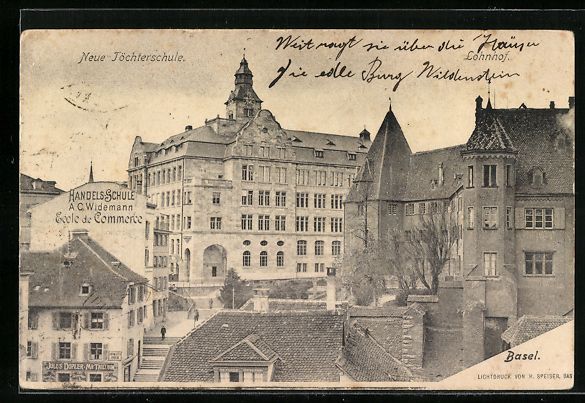 Neue Töchterschule.
Weit ragt sie über die Häuser
Lohnhof.
die edle Burg Wildenstein
HANDELS-SCHULE
A.C. WIDEMANN
Ecole de Commerce
JULES DOPLER-
Basel.
LICHTDRUCK VON H. SPEISER, BAS